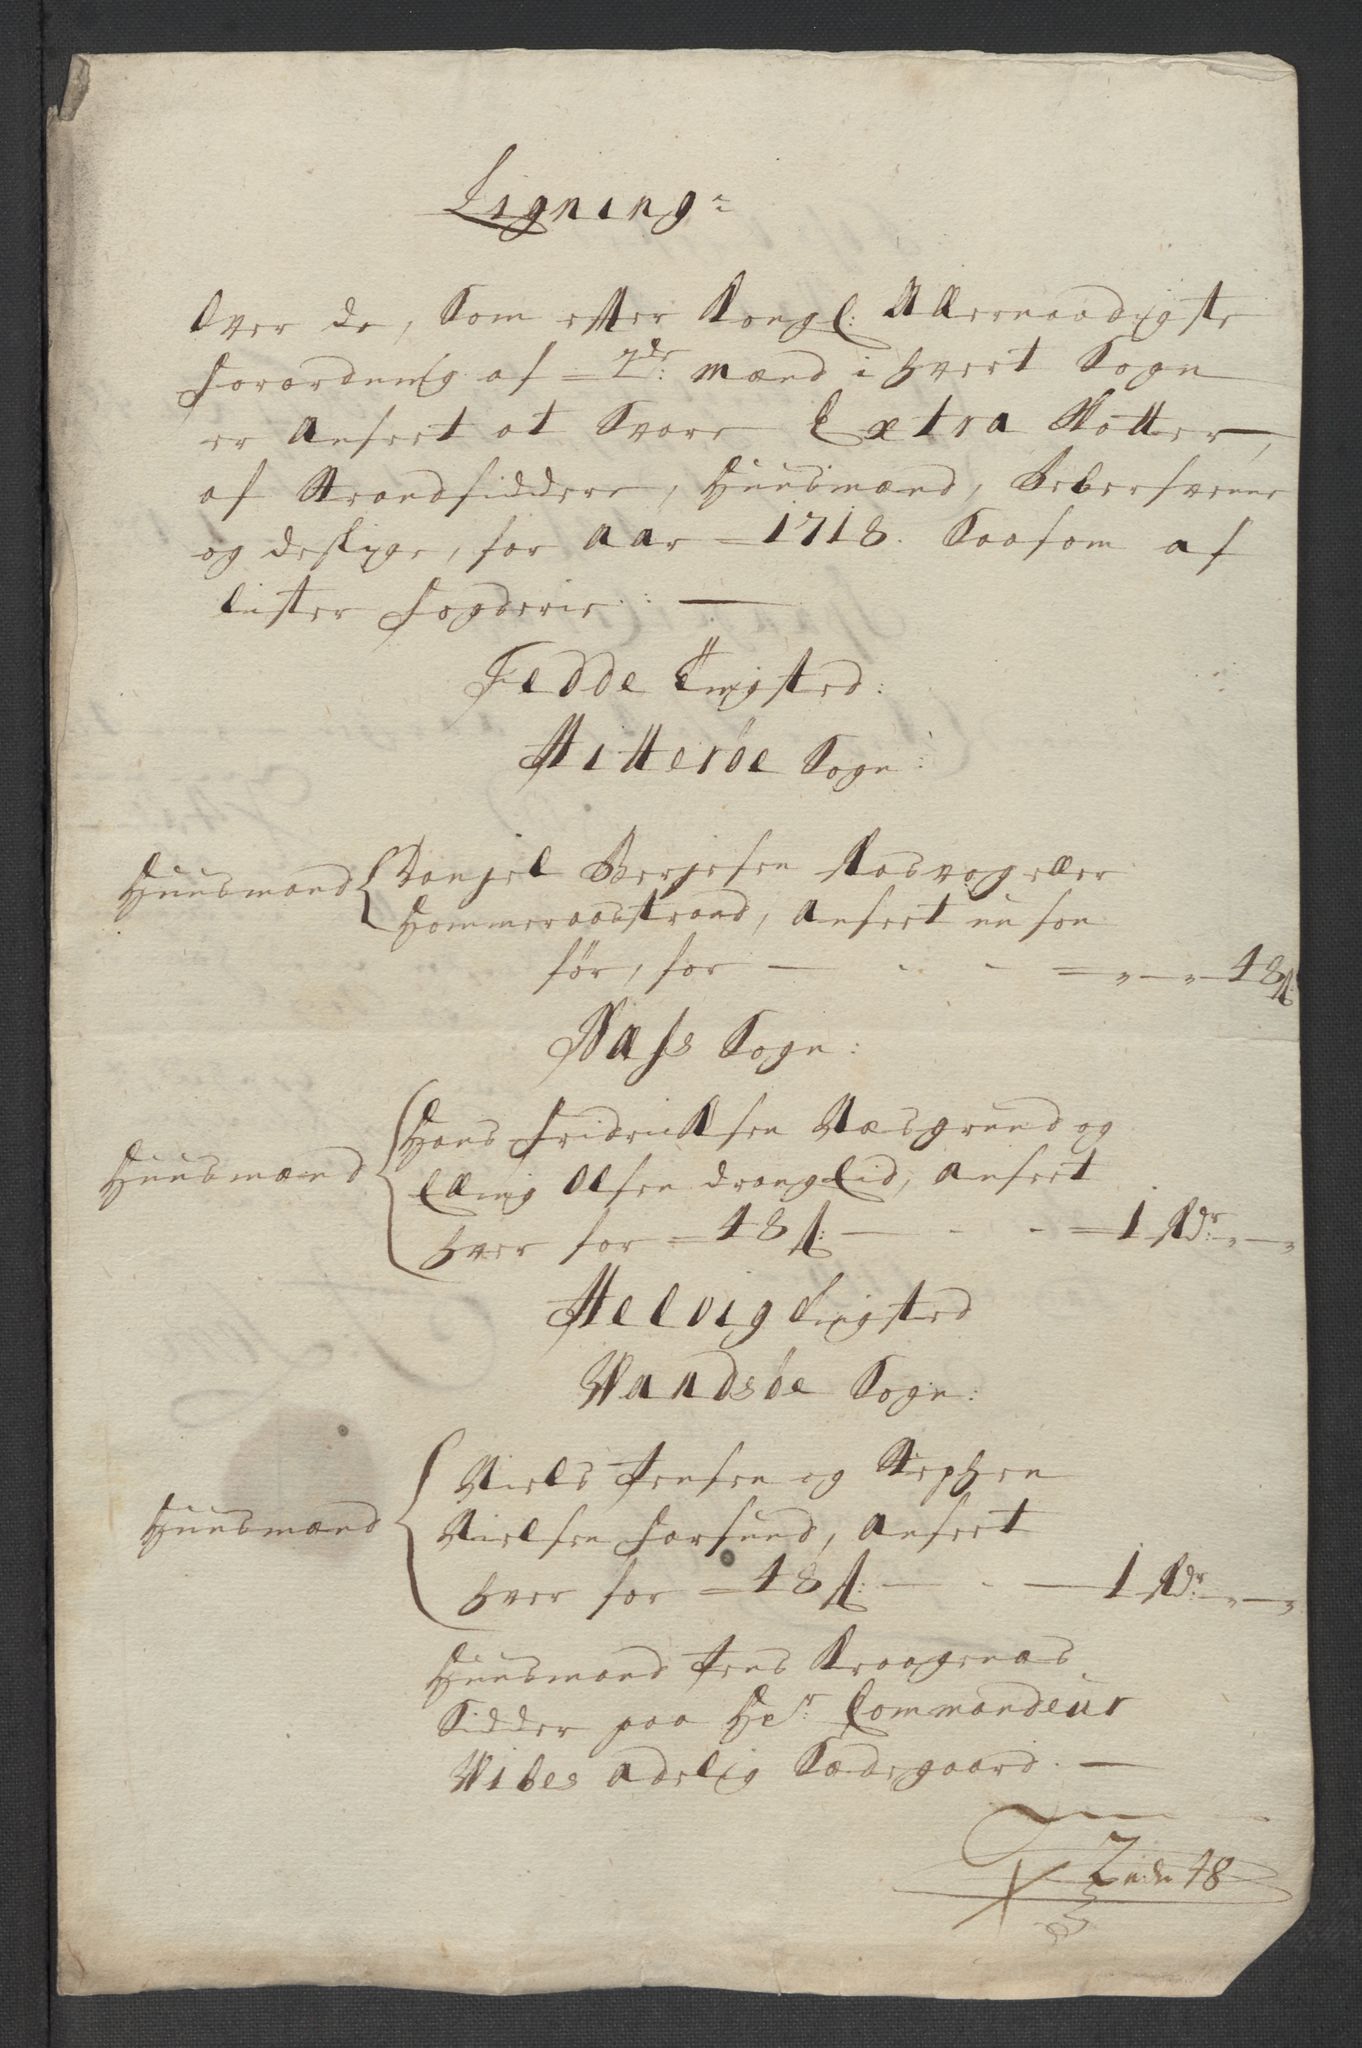 Ligning:
Over de, Som efter Kongl: Allernaadigste
Forordning af 2de: Mænd i hvert Sogn
er Anseet at Svare Extra Skatter,
af Strandsiddere, Huusmænd,
og deslige, for Aar 1718. Saasom af
Lister Fogderie:
Fedde Tingsted:
Hitterøe Sogn:
Huusmand Danjel Berjesen Rasvog eller
Hommeraasstrand, Anseet nu som
før, for 48 s:
Næss Sogn:
Huusmænd Hans Fridrichsen Næsgrund og
Elling Olsen Dranglid, Anseet
hver for 48 s: 1 Rdr:
Helvig Tingsted
Wandsøe Sogn:
Huusmænd Niels Jensen og Stephen
Nielsen Farsund, Anseet
hver for 48 s: 1 Rdr:
Huusmand Jens Kraagenæs
Sidder paa Hr: Commandeur
Wibes Adelig Sædegaard.
2 48